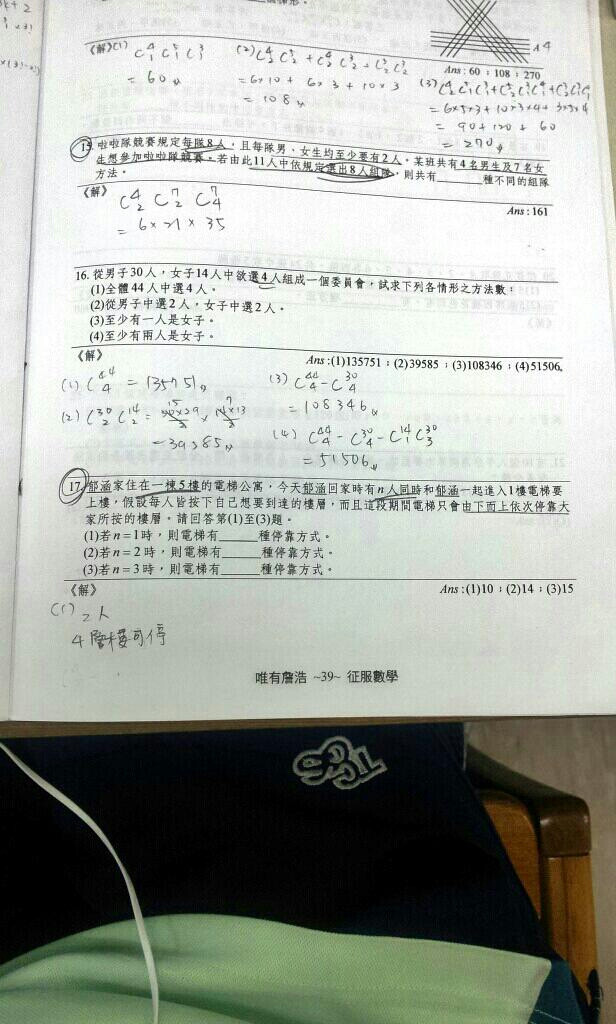 《解》(1) C⁴₁ C⁵₁ C³₁
= 60
(2) C⁴₂ C⁵₂ + C⁴₂ C³₂ + C⁵₂ C³₂
= 6×10 + 6×3 + 10×3
= 108
Ans：60；108；270
= 90 + 120 + 60
= 270
15. 啦啦隊競賽規定每隊8人，且每隊男、女生均至少要有2人。某班共有4名男生及7名女
生想參加啦啦隊競賽。若由此11人中依規定選出8人組隊，則共有______種不同的組隊
方法。
《解》
Ans：161
C⁴₂ C⁷₂ C⁷₄
= 6×21×35
16. 從男子30人，女子14人中欲選4人組成一個委員會，試求下列各情形之方法數：
(1)全體44人中選4人。
(2)從男子中選2人，女子中選2人。
(3)至少有一人是女子。
(4)至少有兩人是女子。
《解》
Ans：(1)135751；(2)39585；(3)108346；(4)51506.
(1) C⁴⁴₄ = 135751
(3) C⁴⁴₄ - C³⁰₄
= 108346
(4) C⁴⁴₄ - C³⁰₄ - C¹⁴₁ C³⁰₃
= 51506
17. 郁涵家住在一棟5樓的電梯公寓，今天郁涵回家時有n人同時和郁涵一起進入1樓電梯要
上樓，假設每人皆按下自己想要到達的樓層，而且這段期間電梯只會由下而上依次停靠大
家所按的樓層。請回答第(1)至(3)題。
(1)若n=1時，則電梯有______種停靠方式。
(2)若n=2時，則電梯有______種停靠方式。
(3)若n=3時，則電梯有______種停靠方式。
《解》
Ans：(1)10；(2)14；(3)15
(1) 2人
4層樓可停
唯有詹浩 ~39~ 征服數學